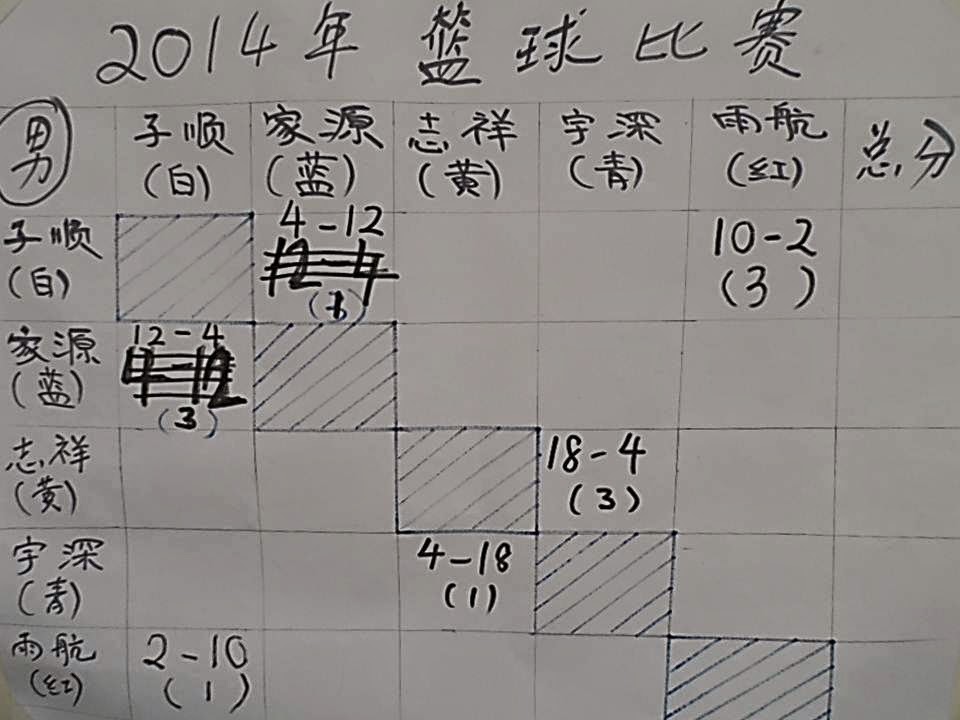 2014年 篮球比赛
男 子顺 家源 志祥 宇深 雨航 总分
(白) (蓝) (黄) (青) (红)
子顺 4-12 10-2
(白) (3)
家源 12-4
(蓝) (3)
志祥 18-4
(黄) (3)
宇深 4-18
(青) (1)
雨航 2-10
(红) (1)